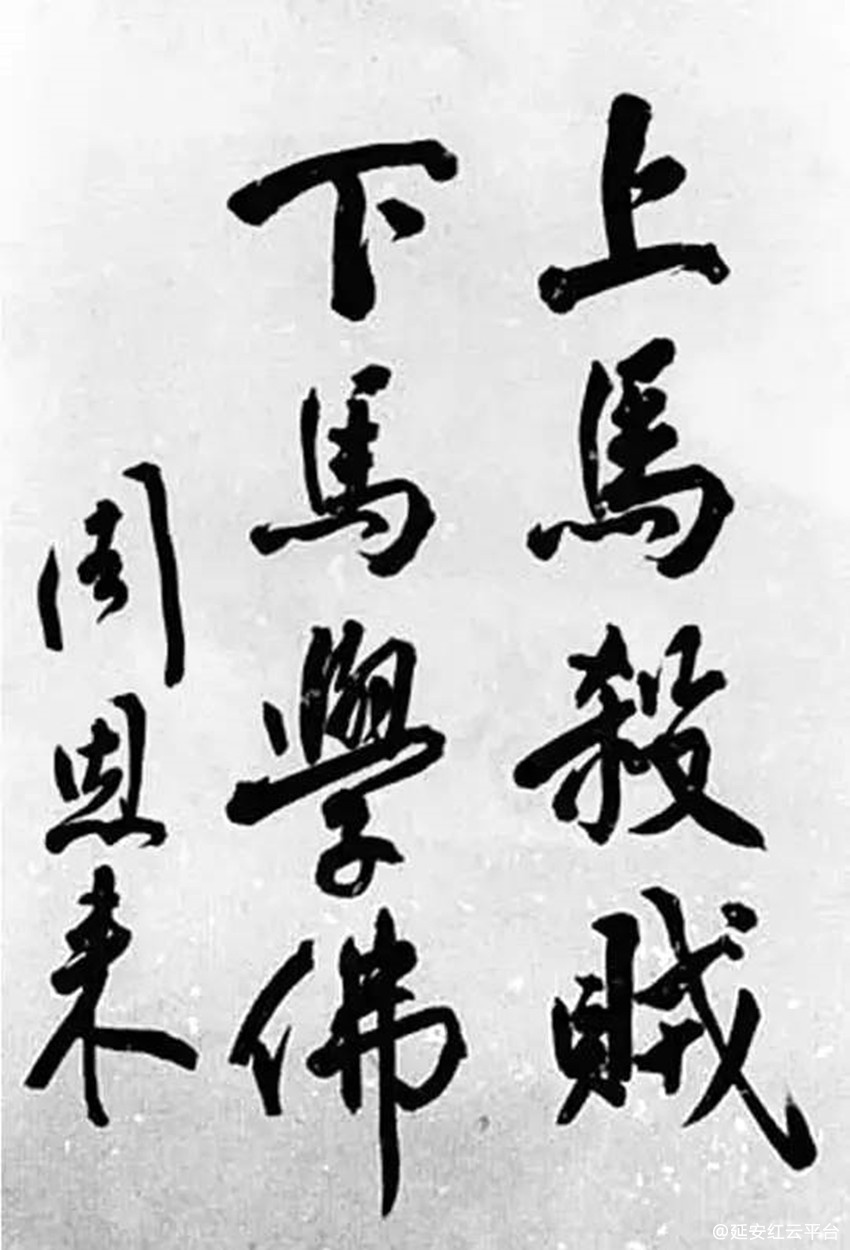 上馬殺賊
下馬學佛
周恩来
@延安红云平台